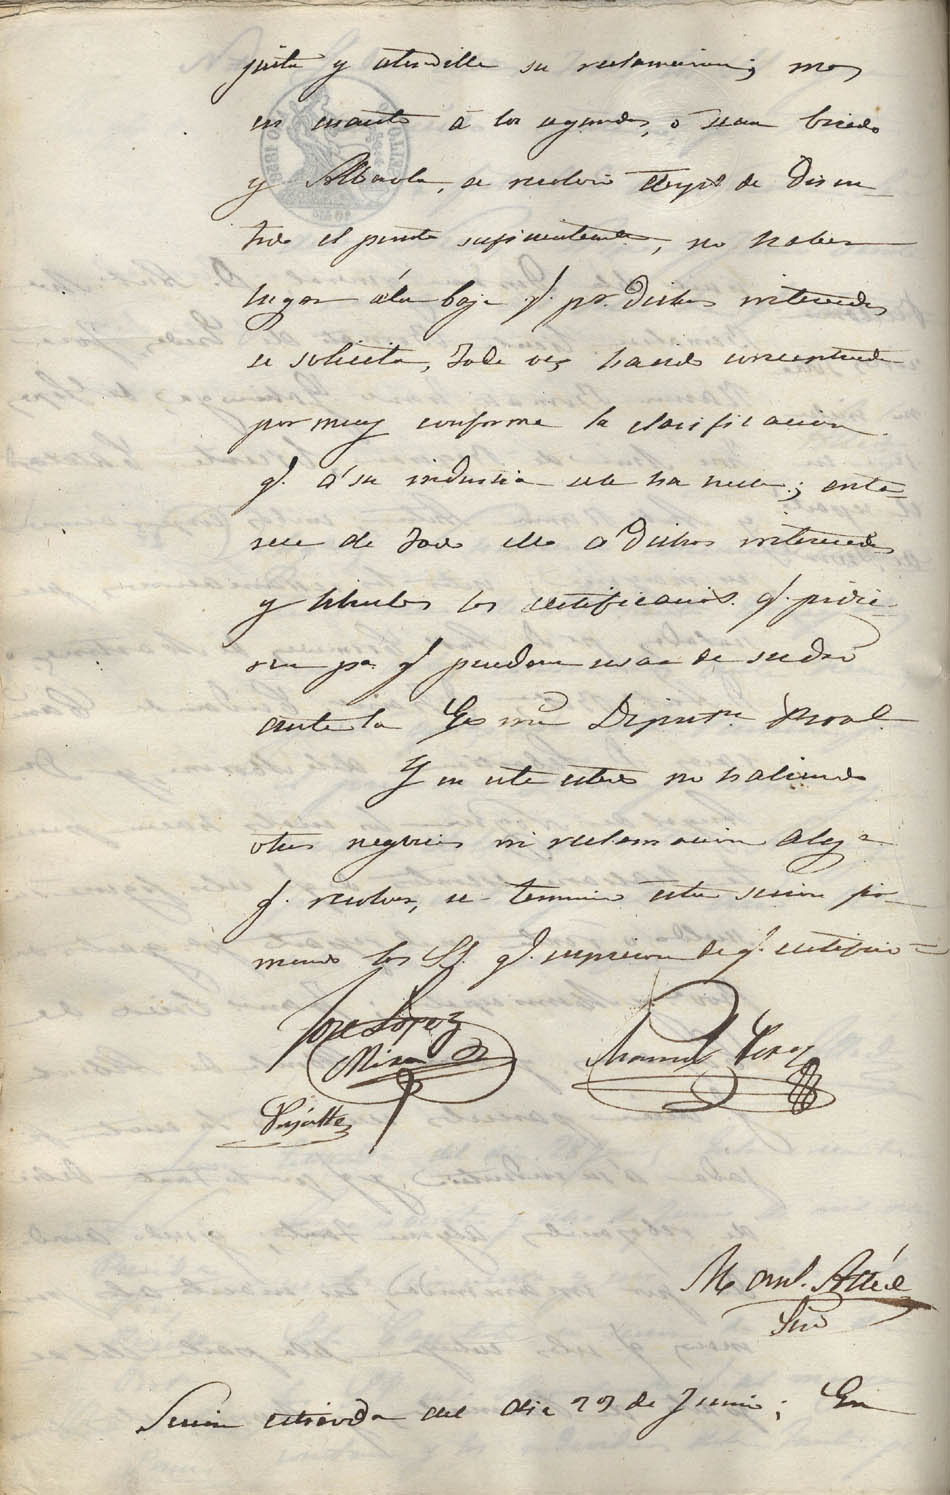 justa y atendible su reclamacion; mas
en cuanto á los segundos, ó sean
y se resolvió despˢ de discu-
tido el punto suficientemte, no haber
lugar á la baja q. pr. dichos interesados
se solicita, toda vez han
por muy conforme la clasificacion
q. á su industria se le ha hecho; ente-
rese de todo ello á dichos interesados
y librenles las certificacions. q. pidie-
ren pa. q. puedan usar de su dro
ante la Exma Diputn. Proal.
Y en este estado no habiendo
otros negocios ni reclamacion alga
q. resolver, se termino esta sesion fir-
mando los SS. q. supieron de q. certifico=
José Lopez
Mira
Manuel Perez
Manl.
Srio
Sesion del dia 29 de Junio; En